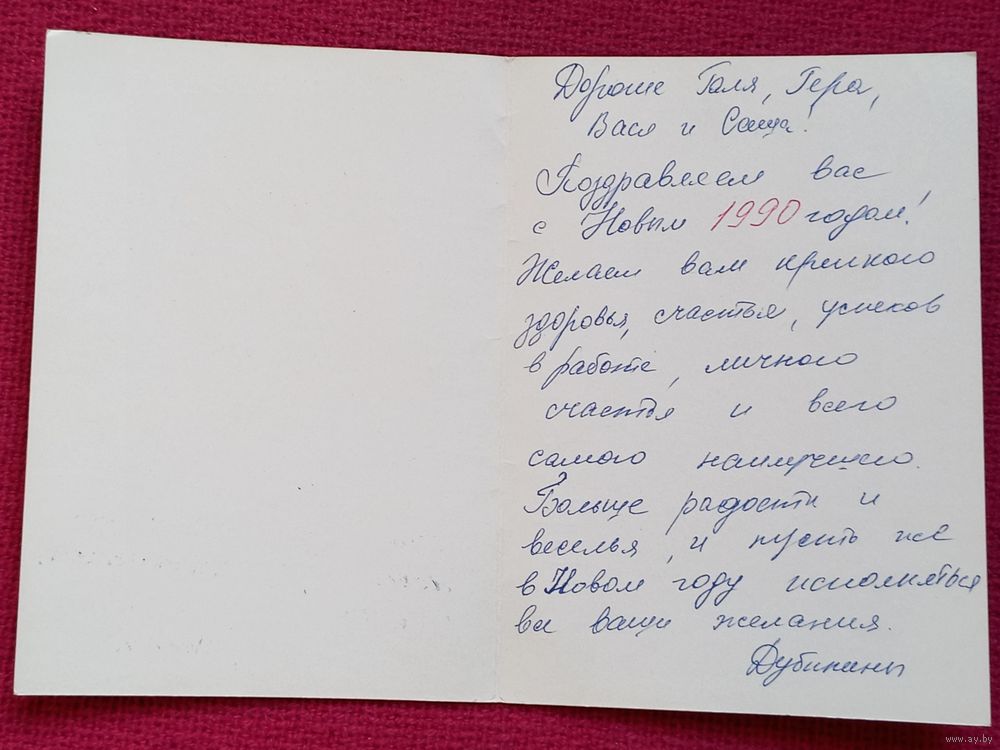 Дорогие Галя, Гера,
Вася и Саша!
Поздравляем вас
с Новым 1990 годом!
Желаем вам крепкого
здоровья, счастья, успехов
в работе, личного
счастья и всего
самого наилучшего.
Больше радости и
веселья, и пусть же
в Новом году исполняться
все ваши желания.
Дубинины
www.ay.by